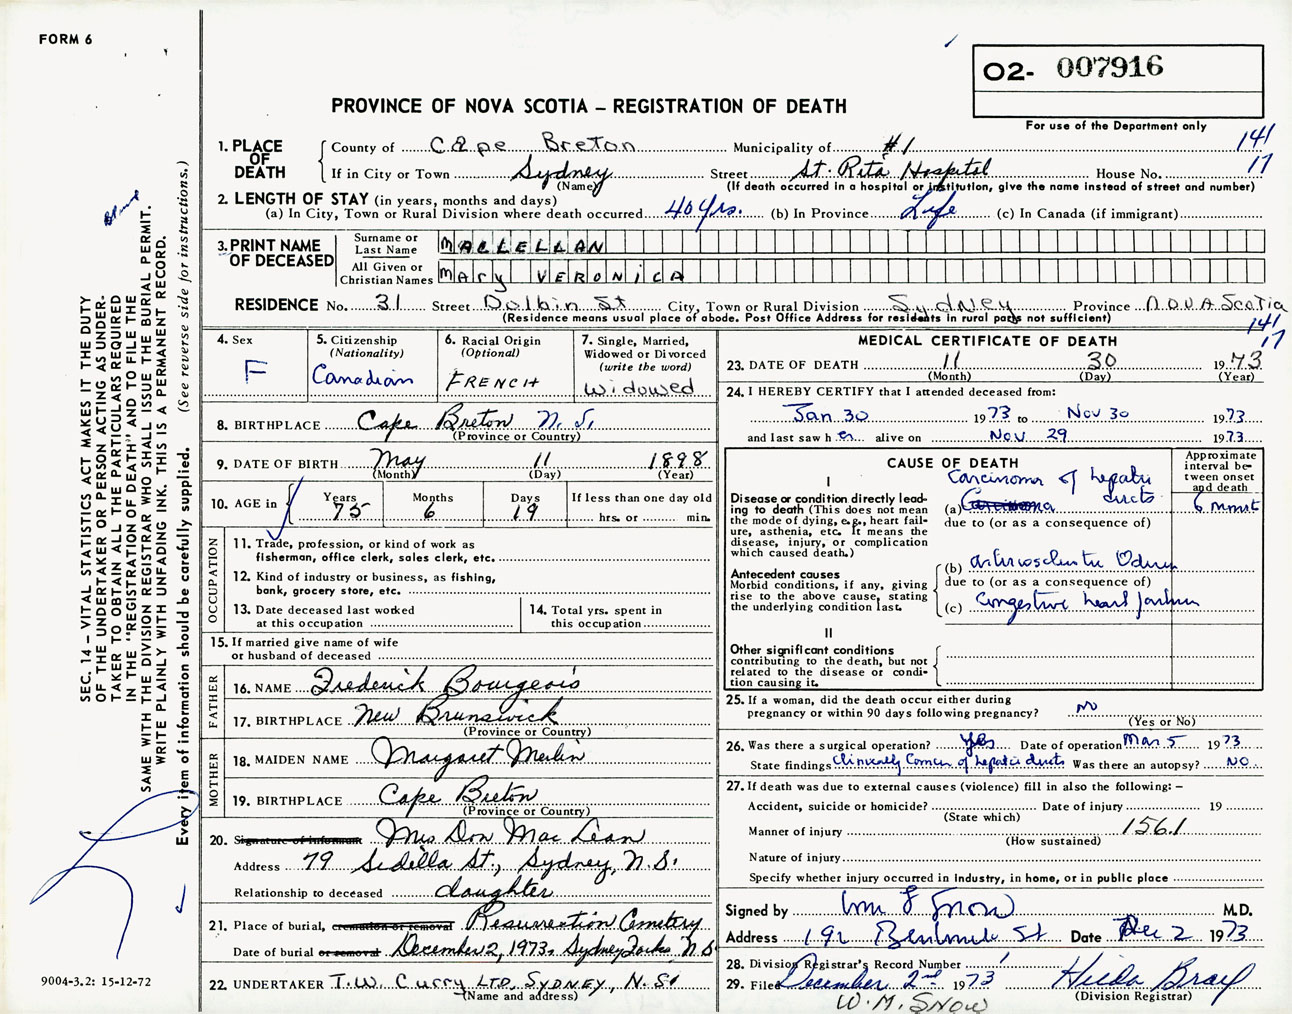 FORM 6
O2- 007916
PROVINCE OF NOVA SCOTIA – REGISTRATION OF DEATH
For use of the Department only
1. PLACE OF DEATH
County of Cape Breton Municipality of #1 141
If in City or Town Sydney Street St. Rita Hospital House No. 17
(Name) (If death occurred in a hospital or institution, give the name instead of street and number)
2. LENGTH OF STAY (in years, months and days)
(a) In City, Town or Rural Division where death occurred 40 yrs. (b) In Province Life (c) In Canada (if immigrant)
3. PRINT NAME OF DECEASED
Surname or Last Name MACLELLAN
All Given or Christian Names MARY VERONICA
RESIDENCE No. 31 Street Dolbin St City, Town or Rural Division Sydney Province NOVA Scotia
(Residence means usual place of abode. Post Office Address for residents in rural parts not sufficient)
141
17
4. Sex
F
5. Citizenship
(Nationality)
Canadian
6. Racial Origin
(Optional)
FRENCH
7. Single, Married,
Widowed or Divorced
(write the word)
Widowed
8. BIRTHPLACE Cape Breton N.S.
(Province or Country)
9. DATE OF BIRTH May 11 1898
(Month) (Day) (Year)
10. AGE in
Years Months Days If less than one day old
75 6 19 hrs. or min.
OCCUPATION
11. Trade, profession, or kind of work as
fisherman, office clerk, sales clerk, etc.
12. Kind of industry or business, as fishing,
bank, grocery store, etc.
13. Date deceased last worked
at this occupation
14. Total yrs. spent in
this occupation
15. If married give name of wife
or husband of deceased
FATHER
16. NAME Frederick Bourgeois
17. BIRTHPLACE New Brunswick
(Province or Country)
MOTHER
18. MAIDEN NAME Margaret Merlin
19. BIRTHPLACE Cape Breton
(Province or Country)
20. Signature of informant Mrs Don Mac Lean
Address 79 St., Sydney, N.S.
Relationship to deceased daughter
21. Place of burial, cremation or removal Resurrection Cemetery
Date of burial or removal December 2, 1973. Sydney Forks N.S.
22. UNDERTAKER T.W. Curry LTD, SYDNEY, N.S.
(Name and address)
MEDICAL CERTIFICATE OF DEATH
23. DATE OF DEATH 11 30 1973
(Month) (Day) (Year)
24. I HEREBY CERTIFY that I attended deceased from:
Jan 30 1973 to Nov 30 1973
and last saw h er alive on Nov 29 1973
CAUSE OF DEATH
Approximate
interval be-
tween onset
and death
I
Disease or condition directly lead-
ing to death (This does not mean
the mode of dying, e.g., heart fail-
ure, asthenia, etc. It means the
disease, injury, or complication
which caused death.)
Carcinoma of hepatic
ducts
(a) Carcinoma 6
due to (or as a consequence of)
Antecedent causes
Morbid conditions, if any, giving
rise to the above cause, stating
the underlying condition last.
(b)
due to (or as a consequence of)
(c) Congestive heart failure
II
Other significant conditions
contributing to the death, but not
related to the disease or condi-
tion causing it.
25. If a woman, did the death occur either during
pregnancy or within 90 days following pregnancy? no
(Yes or No)
26. Was there a surgical operation? Yes Date of operation Mar 5 1973
State findings of hepatic ducts Was there an autopsy? NO
27. If death was due to external causes (violence) fill in also the following: –
Accident, suicide or homicide? Date of injury 19
(State which)
Manner of injury 156.1
(How sustained)
Nature of injury
Specify whether injury occurred in industry, in home, or in public place
Signed by Wm F Snow M.D.
Address 192 St Date Dec 2 1973
28. Division Registrar's Record Number
29. Filed December 2nd 1973 Hilda Bray
(Division Registrar)
W.M. SNOW
SEC. 14 – VITAL STATISTICS ACT MAKES IT THE DUTY
OF THE UNDERTAKER OR PERSON ACTING AS UNDER-
TAKER TO OBTAIN ALL THE PARTICULARS REQUIRED
IN THE "REGISTRATION OF DEATH" AND TO FILE THE
SAME WITH THE DIVISION REGISTRAR WHO SHALL ISSUE THE BURIAL PERMIT.
WRITE PLAINLY WITH UNFADING INK. THIS IS A PERMANENT RECORD.
Every item of information should be carefully supplied. (See reverse side for instructions.)
9004-3.2: 15-12-72